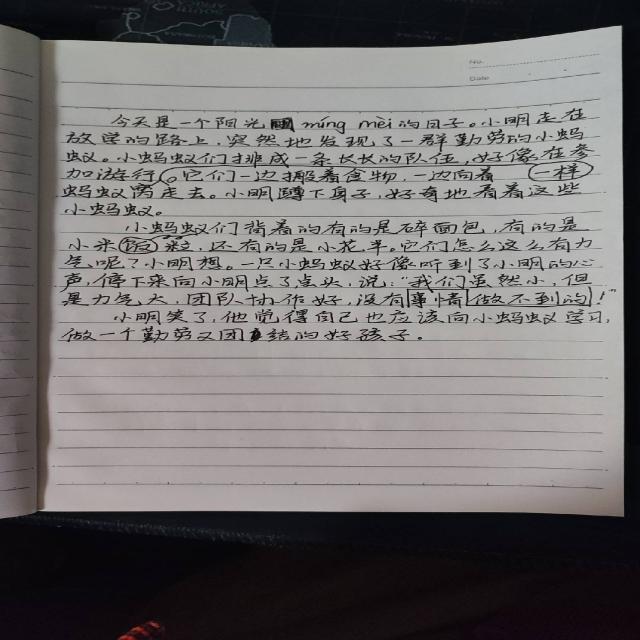 No.
Date
今天是一个阳光 míng mèi的日子。小明走在
放学的路上,突然地发现了一群勤劳的小蚂
蚁。小蚂蚁们排成一条长长的队伍,好像在参
加游行一样。它们一边搬着食物,一边向着
蚂蚁窝走去。小明蹲下身子,好奇地看着这些
小蚂蚁。
小蚂蚁们背着的有的是碎面包,有的是
小米饭粒,还有的是小花半。它们怎么这么有力
气呢?小明想。一只小蚂蚁好像听到了小明的心
声,停下来向小明点了点头,说:“我们虽然小,但
是力气大,团队协作好,没有做不到的事情!”
小明笑了,他觉得自己也应该向小蚂蚁学习,
做一个勤劳又团结的好孩子。